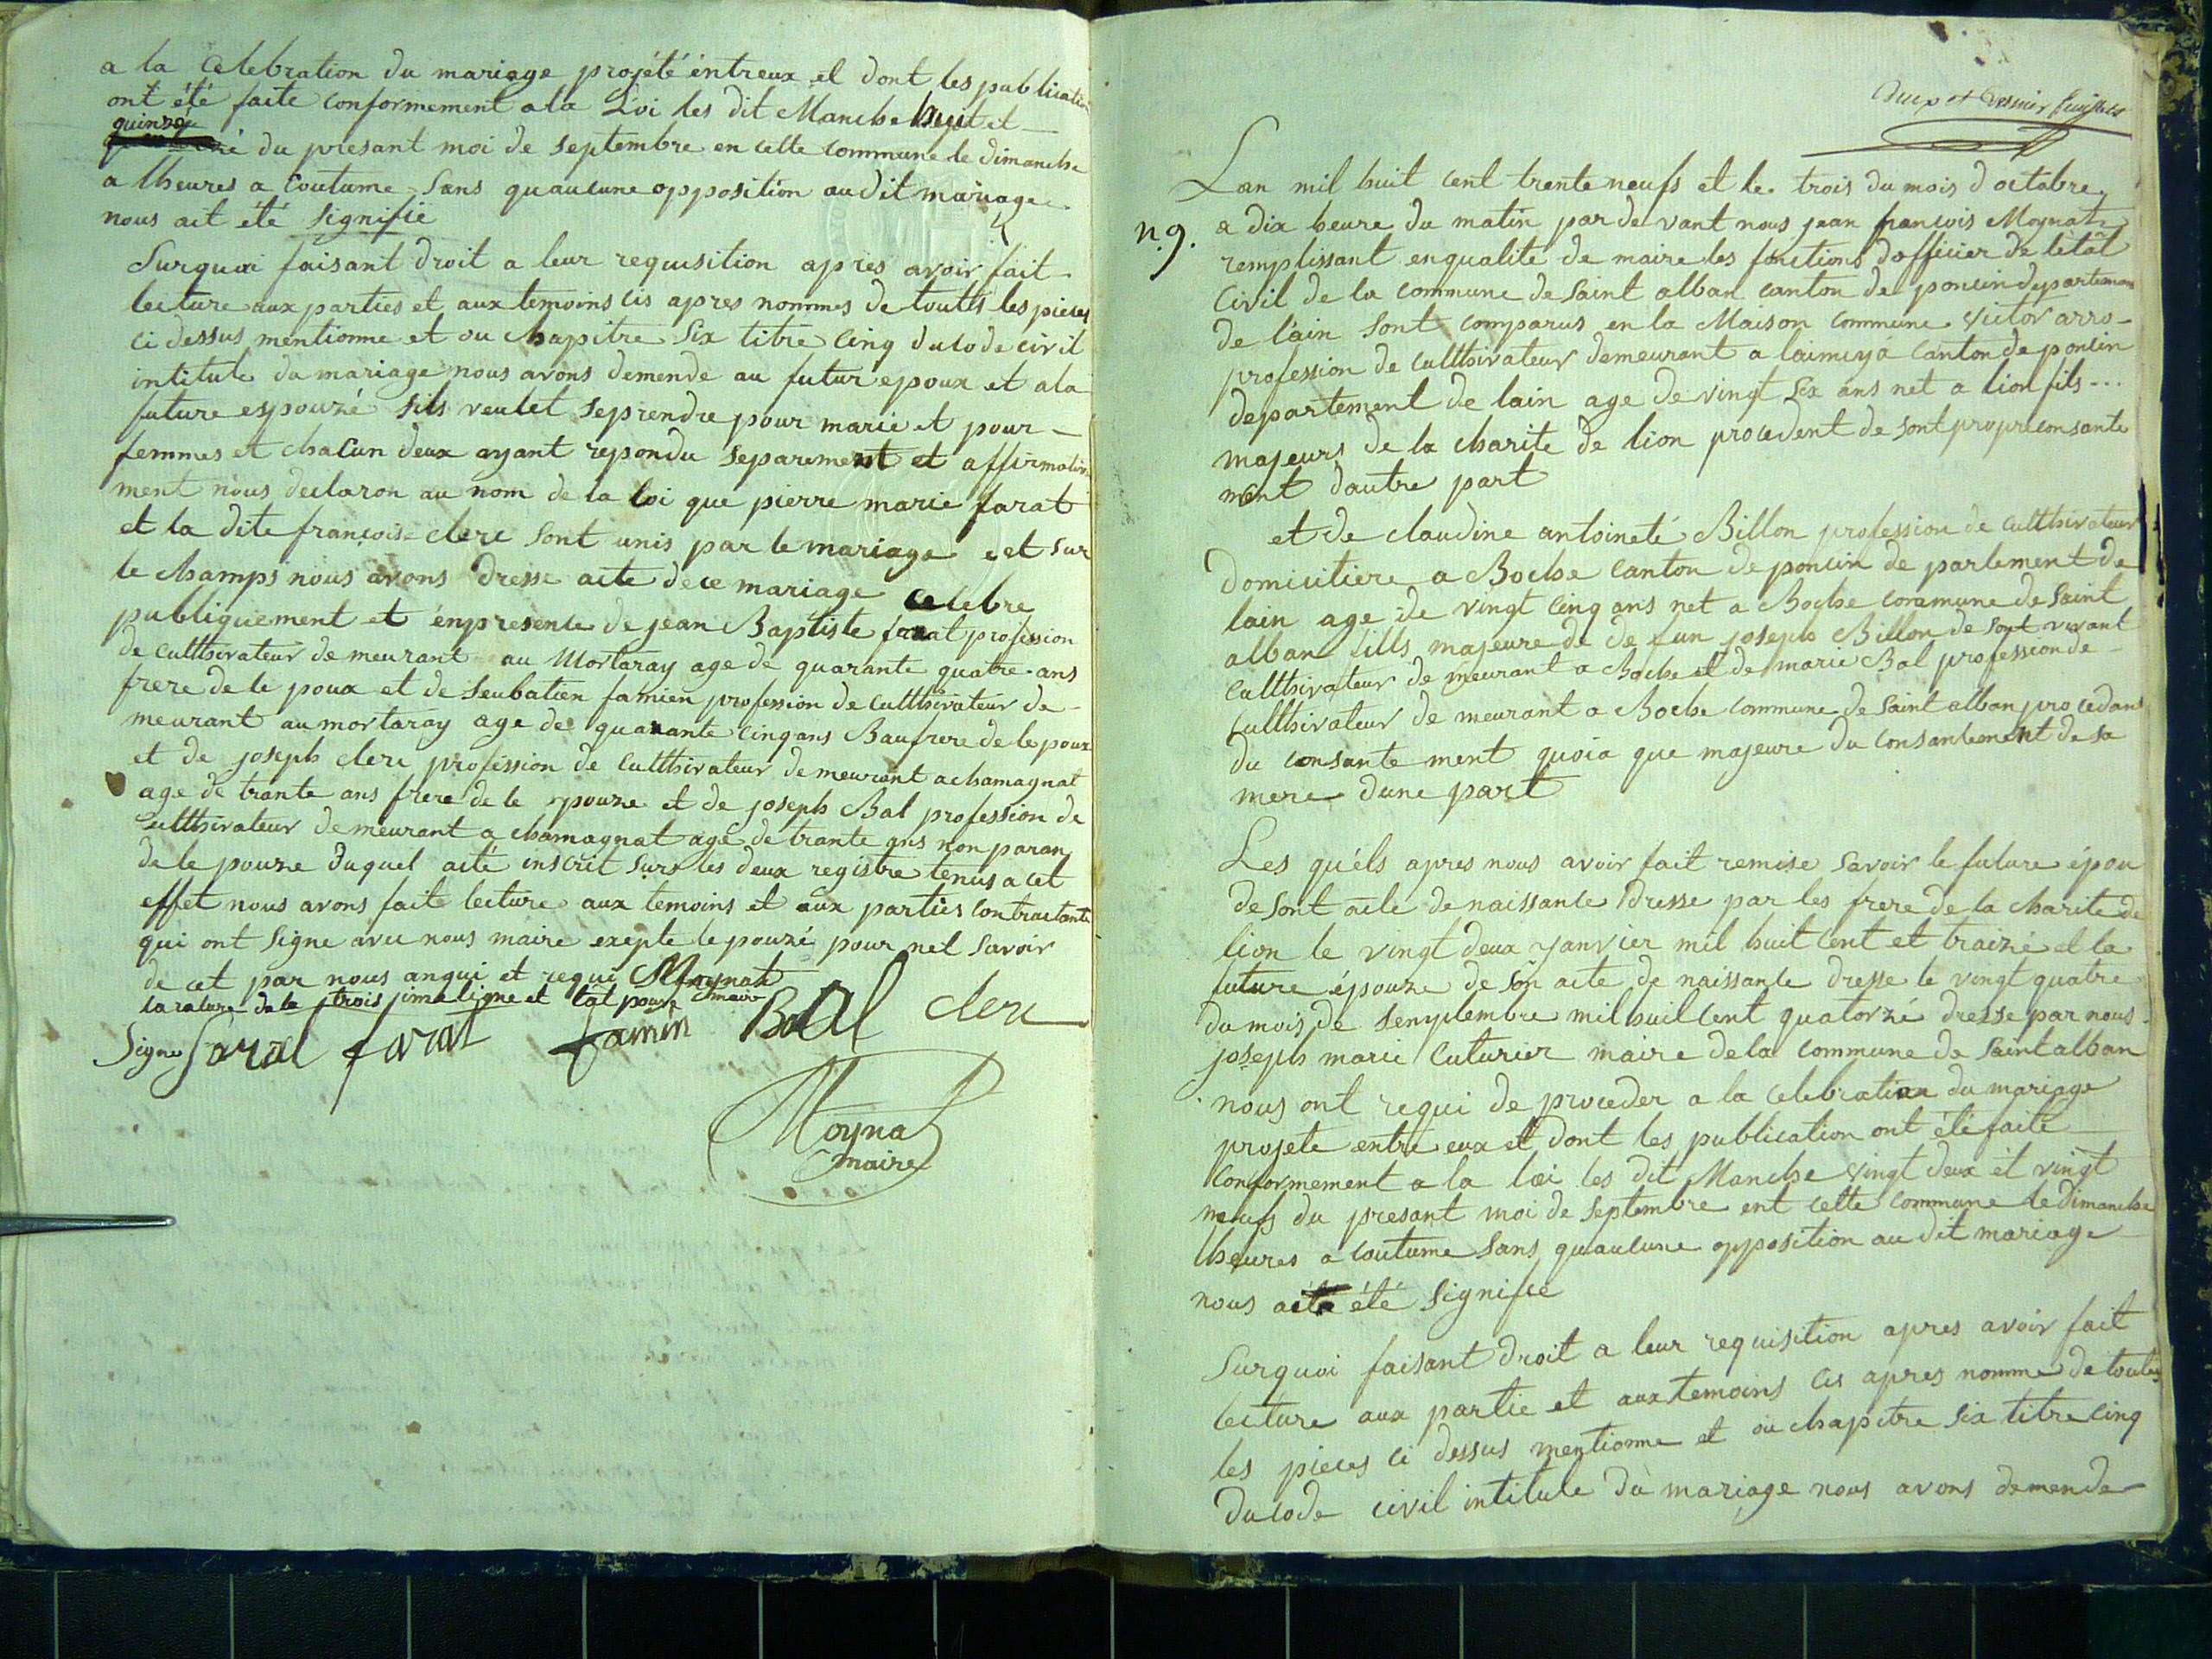 a la Celebration du mariage projété éntreux et dont les publication
ont été faite conformement a la Loi les dit Manche huit et
quinze
du presant moi de septembre en cette commune le dimanche
a lheures a coutume sans quaucune opposition au dit mariage
nous ait été signifié
Surquoi faisant droit a leur requisition apres avoir fait
lecture aux parties et aux temoins cis apres nommes de toutes les pieces
ci dessus mentionne et ou chapitre six titre cinq du code civil
intitule du mariage nous avons demende au futur epoux et a la
future espouzé sils veulet seprendre pour marie et pour
femmes et chacun deux ayant repondu separement et affirmative
ment nous declaron au nom de la loi que pierre marie farat
et la dite françoise clerc sont unis par le mariage et sur
le champs nous avons dresse acte de ce mariage celebre
publiquement et énpresence de jean Baptiste farat profession
de culthivateur de meurant au Mortaray age de quarante quatre ans
frere de le poux et de seubatien famien profession de culthivateur de
meurant au mortaray age de quarante cinq ans Baufrere de le poux
et de joseph clerc profession de culthivateur demeurent a chamagnat
age de trante ans frere de le pouze et de joseph Bal profession de
culthivateur demeurant a chamagnat age de trante ans non paran
de le pouze duquel acte inscrit sur les deux registre tenus a cet
effet nous avons faite lecture aux temoins et aux parties contractante
qui ont signe avec nous maire exepte le pouzé pour net savoir
de cet par nous anqui et requi Moynat
la rature de la trois jime ligne et tat pouve maire
Signe farat farat famin Bal clerc
Moynat
maire
Lan mil huit cent trente neufs et le trois du mois d octobre
n.9. a dix heure du matin par de vant nous jean francois Moynat
remplissant enqualite de maire les fonctions dofficier de létat
Civil de la commune de Saint alban canton de poncin departement
de lain sont comparus en la Maison commune Victor arro-
profession de culthivateur demeurant a laimeya canton de poncin
departement de lain age de vingt six ans net a lion fils ...
majeurs de la charite de lion procedent de sont propre consante
ment dautre part
et de claudine antoineté Billon profession de culthivateur
domicitiere a Boche canton de poncin de partement de
lain age de vingt cinq ans net a Boche commune de Saint
alban fills majeure de de fun joseph Billon de sont vivant
culthivateur de meurant a Boche et de marie Bal profession de
culthivateur de meurant a Boche commune de Saint alban procedans
du consante ment quoia que majeure du consantement de sa
mere dune part
Les quéls apres nous avoir fait remise savoir le future épou
de sont acte de naissance dresse par les frere de la charite de
lion le vingt deux janvier mil huit cent et traizé et la
future épouze de son acte de naissance dresse le vingt quatre
du mois de senptembre mil huil cent quatorzé dresse par nous
joseph marie Cuturier maire de la commune de Saint alban
nous ont requi de proceder a la celebration du mariage
projete entre eux et dont les publication ont été faite
conformement a la loi les dit Manche vingt deux et vingt
neufs du presant moi de septembre ent cette commune le dimanche
lheures a coutume sans quaucune opposition au dit mariage
nous ait été signifié
Surquoi faisant droit a leur requisition apres avoir fait
lecture aux partie et aux temoins cis apres nomme de toutes
les pieces ci dessus mentionne et ou chapitre six titre cinq
du code civil intitule du mariage nous avons demende